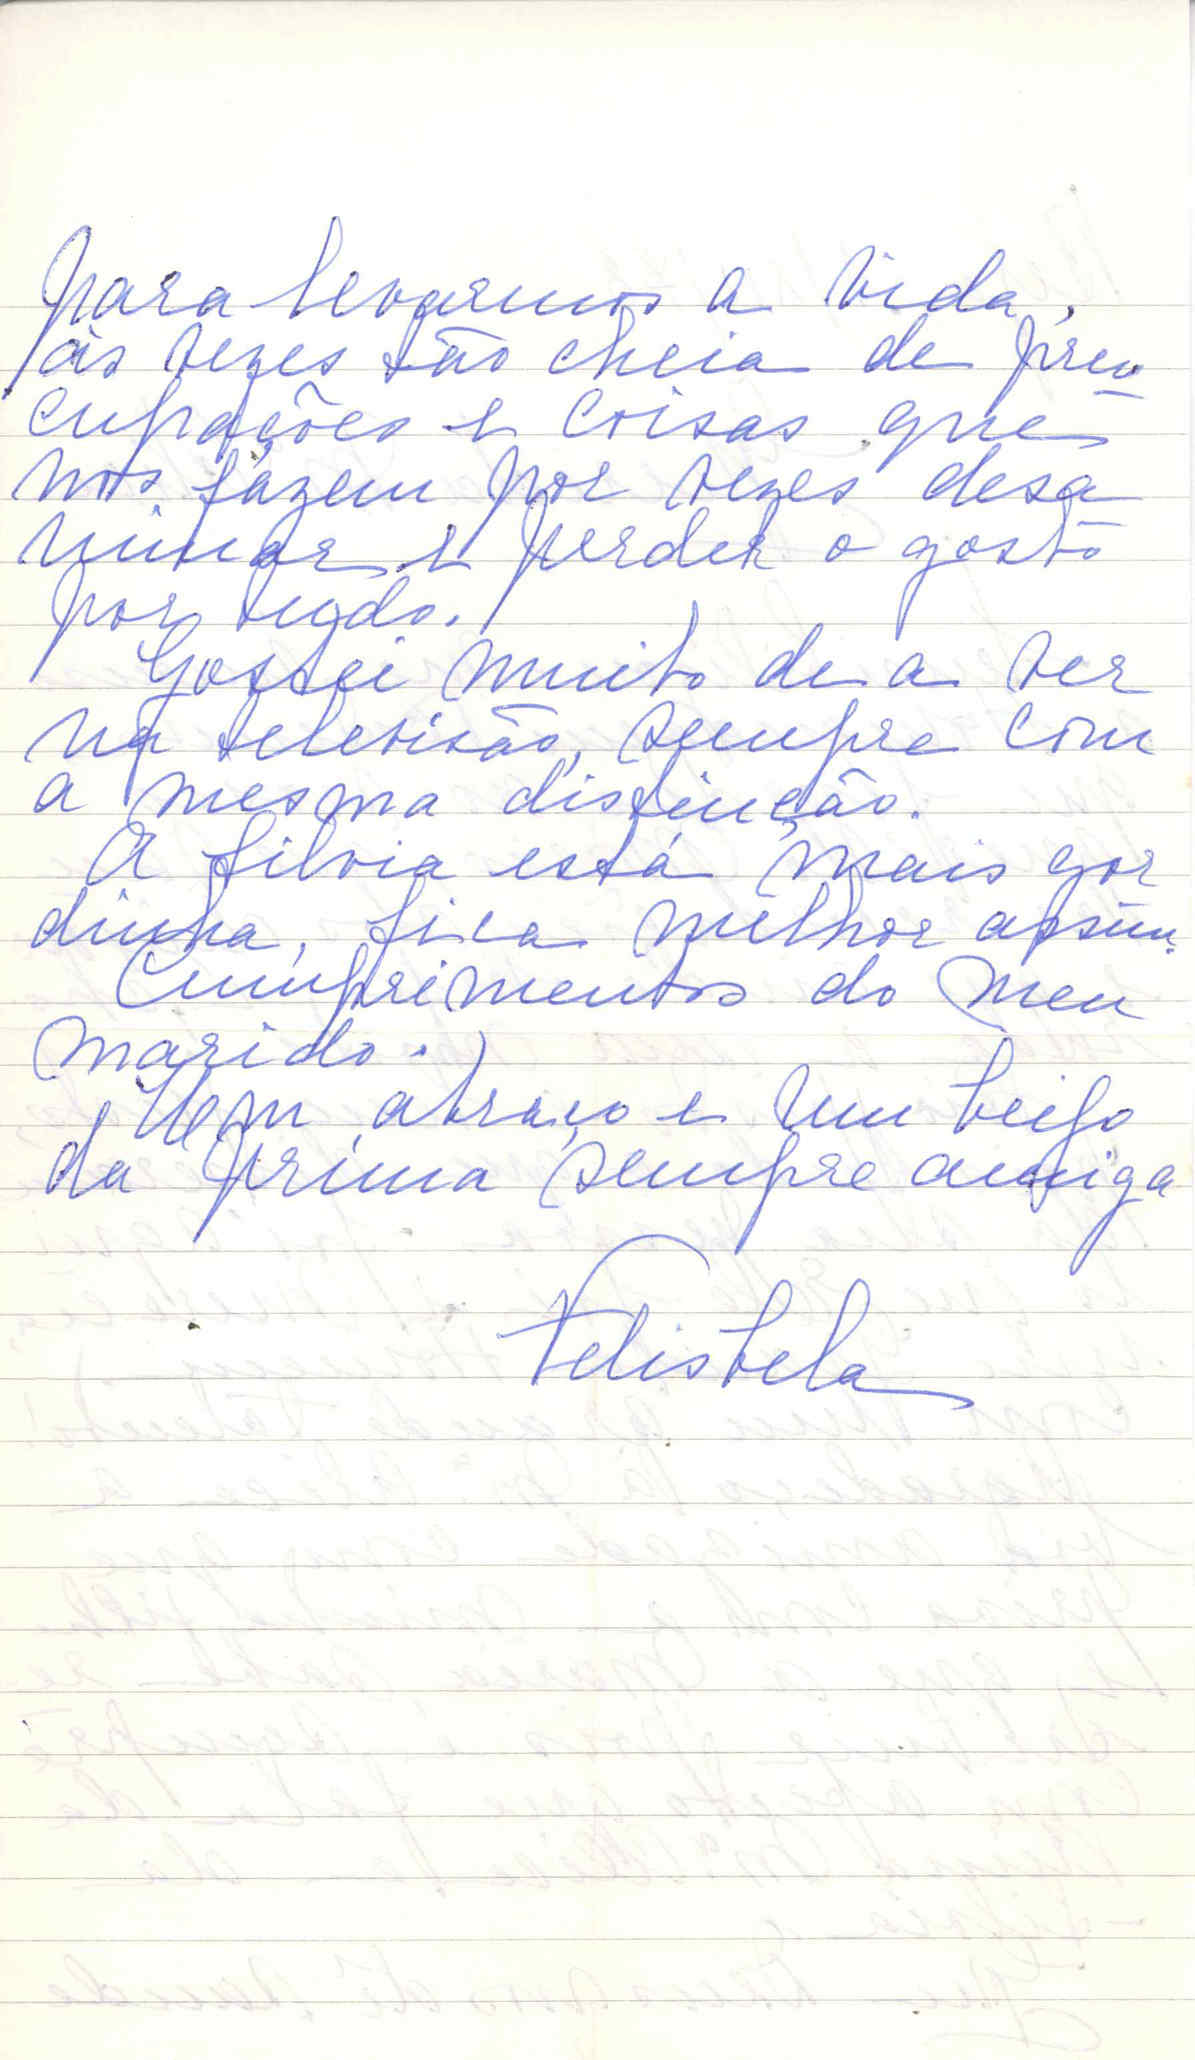 para levarmos a vida,
às vezes tão cheia de preo
cupações e coisas que
nos fazem por vezes desa
nimar e perder o gosto
por tudo.
Gostei muito de a ver
na televisão, sempre com
a mesma distinção.
A Silvia está mais gor
dinha, fica melhor assim.
Cumprimentos do meu
marido.
Um abraço e um beijo
da prima sempre amiga
Felisbela